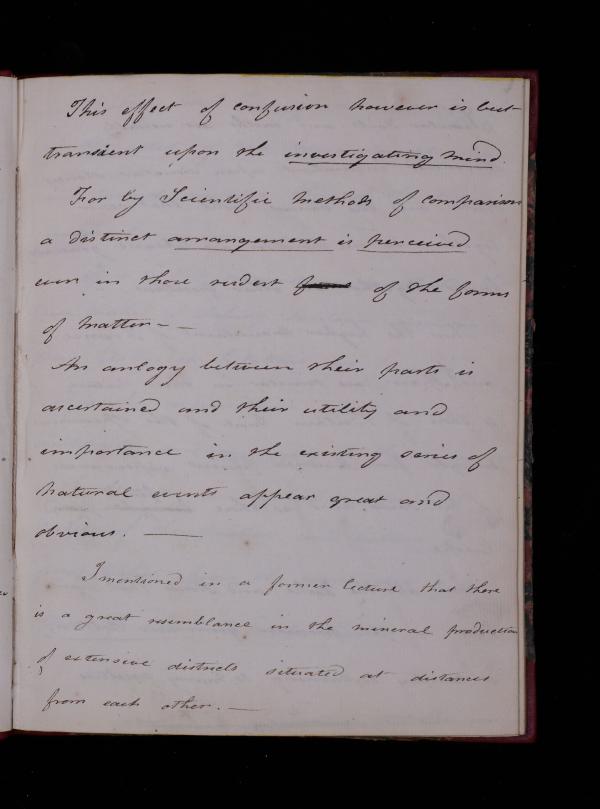 This effect of confusion however is but
transient upon the investigating mind.
For by Scientific methods of comparison
a distinct arrangement is perceived
even in those rudest of the forms
of matter - -
An anlogy between their parts is
ascertained and their utility and
importance in the existing series of
natural events appear great and
obvious. —
I mentioned in a former lecture that there
is a great resemblance in the mineral production
of extensive districts situated at distances
from each other. —